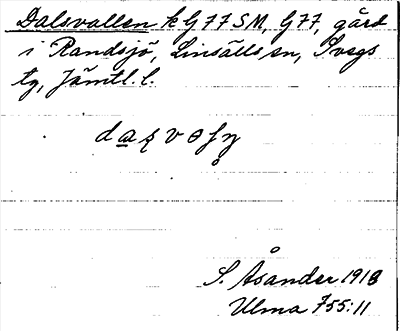 Dalsvallen k G77SM, G77, gård
i Randsjö, Linsälls sn, Svegs
tg, Jämtl. l.
S. Åsander 1918
Ulma 755:11